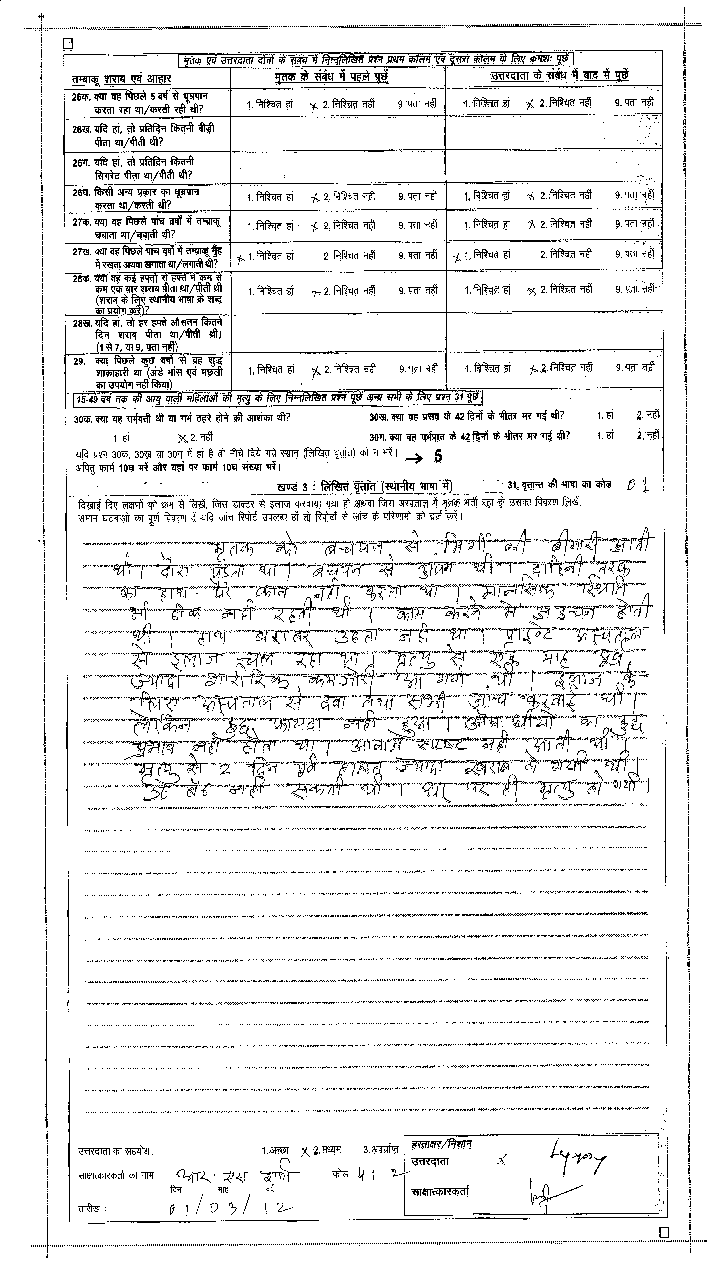 मृतक एवं उत्तरदाता दोनों के संबंध में निम्नलिखित प्रश्न प्रथम कॉलम एवं दूसरा कॉलम के लिए क्रमशः पूछें
तम्बाकू शराब एवं आहार मृतक के संबंध में पहले पूछें उत्तरदाता के संबंध में बाद में पूछें
26क. क्या वह पिछले 5 वर्ष से धूम्रपान करता रहा था/करती रही थी? 1. निश्चित हां x 2. निश्चित नहीं 9. पता नहीं 1. निश्चित हां x 2. निश्चित नहीं 9. पता नहीं
26ख. यदि हां, तो प्रतिदिन कितनी बीड़ी पीता था/पीती थी?
26ग. यदि हां, तो प्रतिदिन कितनी सिगरेट पीता था/पीती थी?
26घ. किसी अन्य प्रकार का धूम्रपान करता था/करती थी? 1. निश्चित हां x 2. निश्चित नहीं 9. पता नहीं 1. निश्चित हां x 2. निश्चित नहीं 9. पता नहीं
27क. क्या वह पिछले पांच वर्षों में तम्बाकू चबाता था/चबाती थी? 1. निश्चित हां x 2. निश्चित नहीं 9. पता नहीं 1. निश्चित हां x 2. निश्चित नहीं 9. पता नहीं
27ख. क्या वह पिछले पांच वर्षों में तम्बाकू मुँह में रखता अथवा लगाता था/लगाती थी? x 1. निश्चित हां 2. निश्चित नहीं 9. पता नहीं x 1. निश्चित हां 2. निश्चित नहीं 9. पता नहीं
28क. क्या वह कई हफ्तों से हफ्ते में कम से कम एक बार शराब पीता था/पीती थी (शराब के लिए स्थानीय भाषा के शब्द का प्रयोग करें)? 1. निश्चित हां x 2. निश्चित नहीं 9. पता नहीं 1. निश्चित हां x 2. निश्चित नहीं 9. पता नहीं
28ख. यदि हां, तो हर हफ्ते औसतन कितने दिन शराब पीता था/पीती थी। (1 से 7, या 9, पता नहीं)
29. क्या पिछले कुछ वर्षों से वह शुद्ध शाकाहारी था (अंडे मांस एवं मछली का उपयोग नहीं किया) 1. निश्चित हां x 2. निश्चित नहीं 9. पता नहीं 1. निश्चित हां x 2. निश्चित नहीं 9. पता नहीं
15-49 वर्ष तक की आयु वाली महिलाओं की मृत्यु के लिए निम्नलिखित प्रश्न पूछें अन्य सभी के लिए प्रश्न 31 पूछें
30क. क्या वह गर्भवती थी या गर्भ ठहरे होने की आशंका थी? 30ख. क्या वह प्रसव के 42 दिनों के भीतर मर गई थी? 1. हां 2. नहीं
1. हां x 2. नहीं 30ग. क्या वह गर्भपात के 42 दिनों के भीतर मर गई थी? 1. हां 2. नहीं
यदि प्रश्न 30क, 30ख या 30ग में हां है तो नीचे दिये गये स्थान (लिखित वृतांत) को न भरें। → 5
अपितु फार्म 10घ भरें और यहां पर फार्म 10घ संख्या भरें।
खण्ड 3 : लिखित वृतांत (स्थानीय भाषा में) 31. वृत्तान्त की भाषा का कोड 01
दिखाई दिए लक्षणों को क्रम से लिखें, जिस डाक्टर से इलाज करवाया गया हो अथवा जिस अस्पताल में मृतक भर्ती रहा हो उसका विवरण लिखें।
समान घटनाओं का पूर्ण विवरण दें यदि जांच रिपोर्ट उपलब्ध हो तो रिपोर्टों से जांच के परिणामों को दर्ज करें।
मृतक को बचपन से मिर्गी की बीमारी आती
थी। दौरा पड़ता था। बचपन से अपंग थी। दाहिनी तरफ
का हाथ पैर काम नहीं करता था। मानसिक स्थिति
भी ठीक नहीं रहती थी। काम करने में होती
थी। हाथ बराबर उठता नहीं था। प्राईवेट अस्पताल
से इलाज चल रहा था। मृत्यु से एक माह पूर्व
ज्यादा शारीरिक कमजोरी आ गयी थी। इलाज के
लिए अस्पताल से दवा तथा सभी जांच करवाई थी।
लेकिन कुछ फायदा नहीं हुआ। औषधीयों का कुछ
प्रभाव नहीं होता था। आवाज स्पष्ट नहीं आती थी।
मृत्यु से 2 दिन पूर्व हालत ज्यादा खराब हो गयी थी।
उठ बैठ नहीं सकती थी। घर पर ही मृत्यु हो गयी।
उत्तरदाता का सहयोग. 1. अच्छा x 2. मध्यम 3. अपर्याप्त हस्ताक्षर/निशान
उत्तरदाता x
साक्षात्कारकर्ता का नाम आर एस कोड
दिन माह वर्ष साक्षात्कारकर्ता
तारीख : 01/03/12